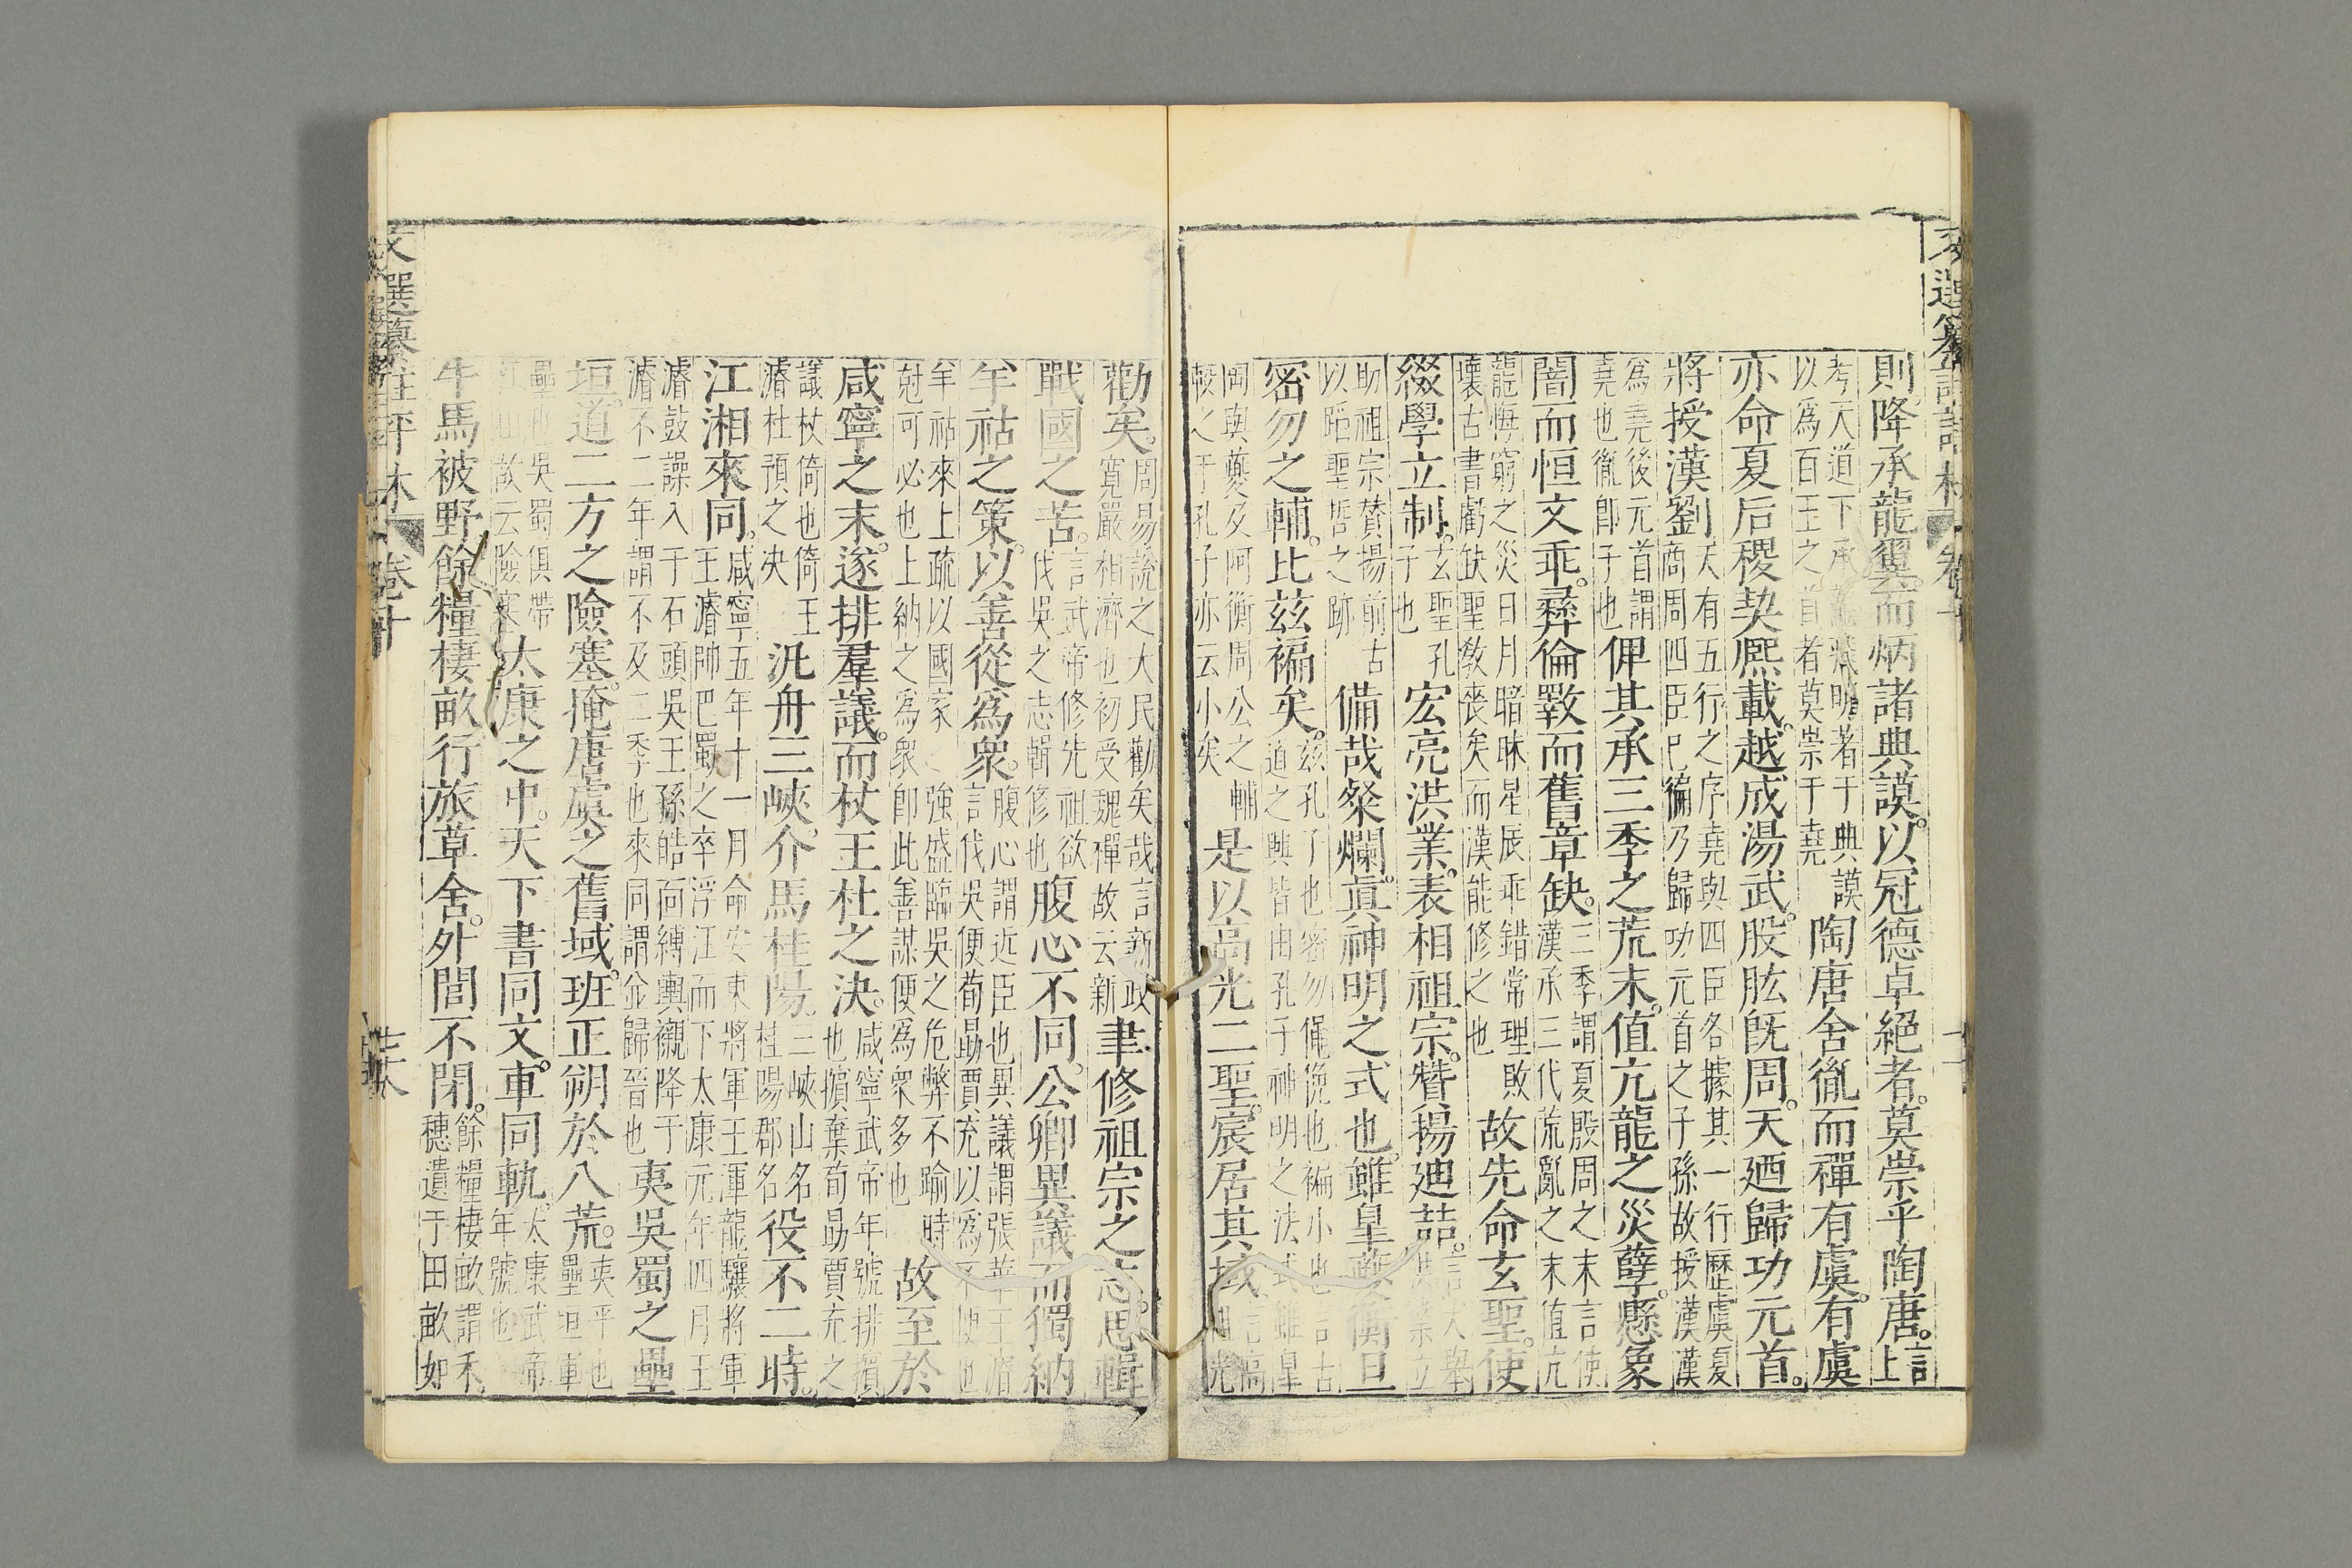 則降承龍翼。而炳諸典謨。以冠德卓絕者。莫崇乎陶唐。言上
考天道下承龍翼明著于典謨
以為百王之首者莫崇于堯
陶唐舍徹而禪有虞。有虞
亦命夏后稷契熙載。越成湯武。股肱旣周。天迺歸功元首。
將授漢劉
天有五行之序堯與四臣各據其一行歷虞夏
商周四臣已徧乃歸功元首之子孫故授漢漢
為堯後元首謂
堯也徹卽子也
俾其承三季之荒末。值亢龍之災孽。懸象
闇而恒文乖。彝倫斁而舊章缺。
三季謂夏殷周之末言使
漢承三代荒亂之末值亢
龍悔窮之災日月暗昧星辰乖錯常理敗
壞古書虧缺聖教喪矣而漢能修之也
故先命玄聖。使
綴學立制。
玄聖孔
子也
宏亮洪業。表相祖宗。贊揚迪喆。
言大舉
洪業立
助祖宗贊揚前古
以蹈聖哲之跡
備哉粲爛。眞神明之式也。雖皇夔衡旦
密勿之輔。比茲褊矣。
茲孔子也密勿僶俛也褊小也言古
道之興皆由孔子神明之法式雖皐
陶與夔及阿衡周公之輔
較之于孔子亦云小矣
是以高光二聖。宸居其域。
言高
勸矣。
周易說之大民勸矣哉言新政
寬嚴相濟也初受魏禪故云新
聿修祖宗之志。思輯
戰國之苦。
言武帝修先祖欲
伐吳之志輯修也
腹心不同。公卿異議。而獨納
羊祜之策。以善從為衆。
腹心謂近臣也異議謂張華王濬
言伐吳便荀勗賈充以為不便也
羊祜來上疏以國家強盛臨吳之危弊不踰時
尅可必也上納之為衆卽此善謀便為衆多也
故至於
咸寧之末。遂排羣議。而杖王杜之決。
咸寧武帝年號排擯
也擯棄荀勗賈充之
議杖倚也倚王
濬杜預之決
汎舟三峽。介馬桂陽。
三峽山名
桂陽郡名
役不二時。
江湘來同。
咸寧五年十一月命安東將軍王渾龍驤將軍
王濬帥巴蜀之卒浮江而下太康元年四月王
濬鼓譟入于石頭吳王孫皓面縛輿櫬降于
濬不二年謂不及二季也來同謂並歸晉也
夷吳蜀之壘
垣。道二方之險塞。掩唐虞之舊域。班正朔於八荒。
夷平也
壘垣軍
壘也吳蜀俱帶
江山故云險塞
太康之中。天下書同文。車同軌。
太康武帝
年號也
牛馬被野。餘糧棲畝。行旅草舍。外閭不閉。
餘糧棲畝謂禾
穗遺于田畝如
文選纂註評林
卷十